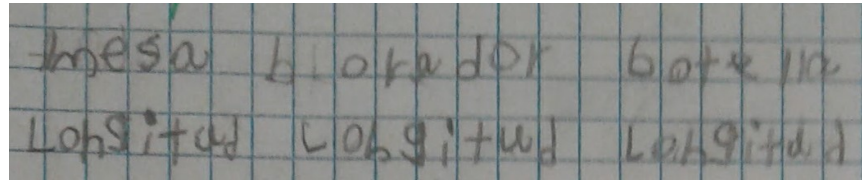 mesa borador botella
Longitud Longitud Longitud